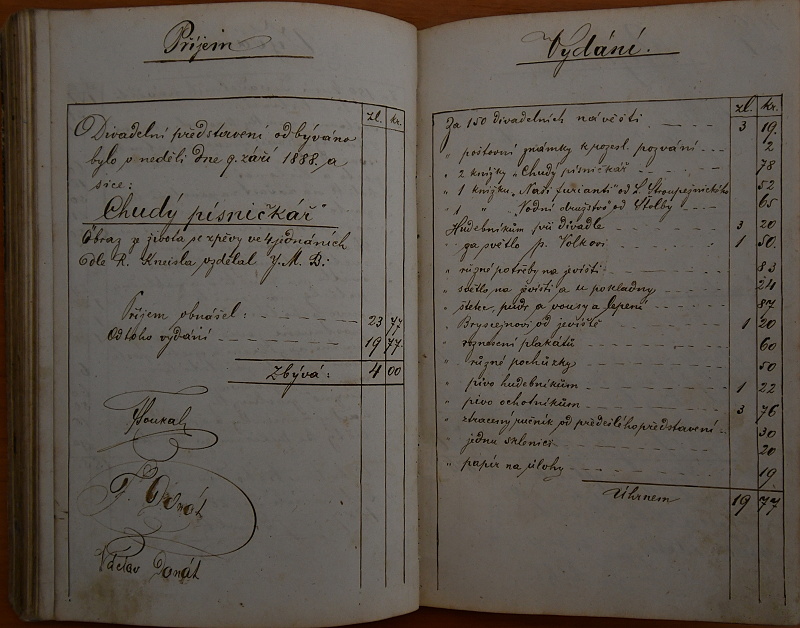 Příjem
zl. kr.
Divadelní představení odbýváno
bylo v neděli dne 9. září 1888. a
sice:
„Chudý písničkář“
Obraz ze života se zpěvy ve 4 jednáních
dle R. Kneisla vzdělal J. M. B.
Příjem obnášel: 23 77
Od toho vydání 19 77
Zbývá: 4 00
F. Donát
Václav Donát
Vydání.
zl. kr.
Za 150 divadelních návěští 3 19.
" poštovní známky k pozvání 2
" 2 knížky „Chudý písničkář“ 78
" 1 knížku „Naši furianti“ od L. Stroupežnického 52
" 1 " „Vodní družstvo“ od Štolby 65
Hudebníkům při divadle 3 20
" za světlo p. Volkovi 1 50.
" různé potřeby na jeviště 83
" světlo na jeviště a u pokladny 24
" štětec, pudr a vousy a lepení 87
" od jeviště 1 20
" roznesení plakátů 60
" různé pochůzky 50
" pivo hudebníkům 1 22
" pivo ochotníkům 3 76
" ztracený ručník od předešlého představení 30
" jednu sklenici 20
" papír na úlohy 19
Úhrnem 19 77